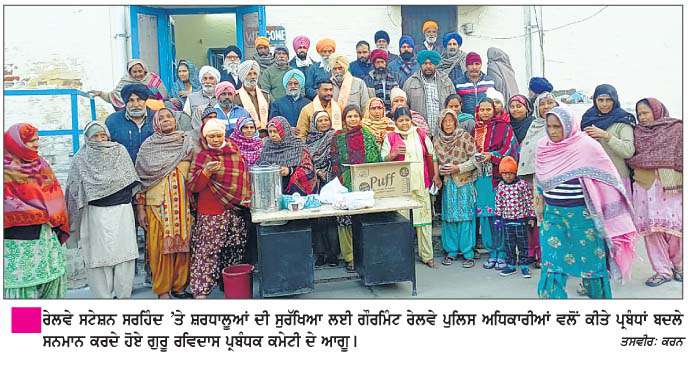 WELCOME
Puff
ਰੇਲਵੇ ਸਟੇਸ਼ਨ ਸਰਹਿੰਦ 'ਤੇ ਸ਼ਰਧਾਲੂਆਂ ਦੀ ਸੁਰੱਖਿਆ ਲਈ ਗੌਰਮਿੰਟ ਰੇਲਵੇ ਪੁਲਿਸ ਅਧਿਕਾਰੀਆਂ ਵਲੋਂ ਕੀਤੇ ਪ੍ਰਬੰਧਾਂ ਬਦਲੇ
ਸਨਮਾਨ ਕਰਦੇ ਹੋਏ ਗੁਰੂ ਰਵਿਦਾਸ ਪ੍ਰਬੰਧਕ ਕਮੇਟੀ ਦੇ ਆਗੂ। ਤਸਵੀਰ: ਕਰਨ